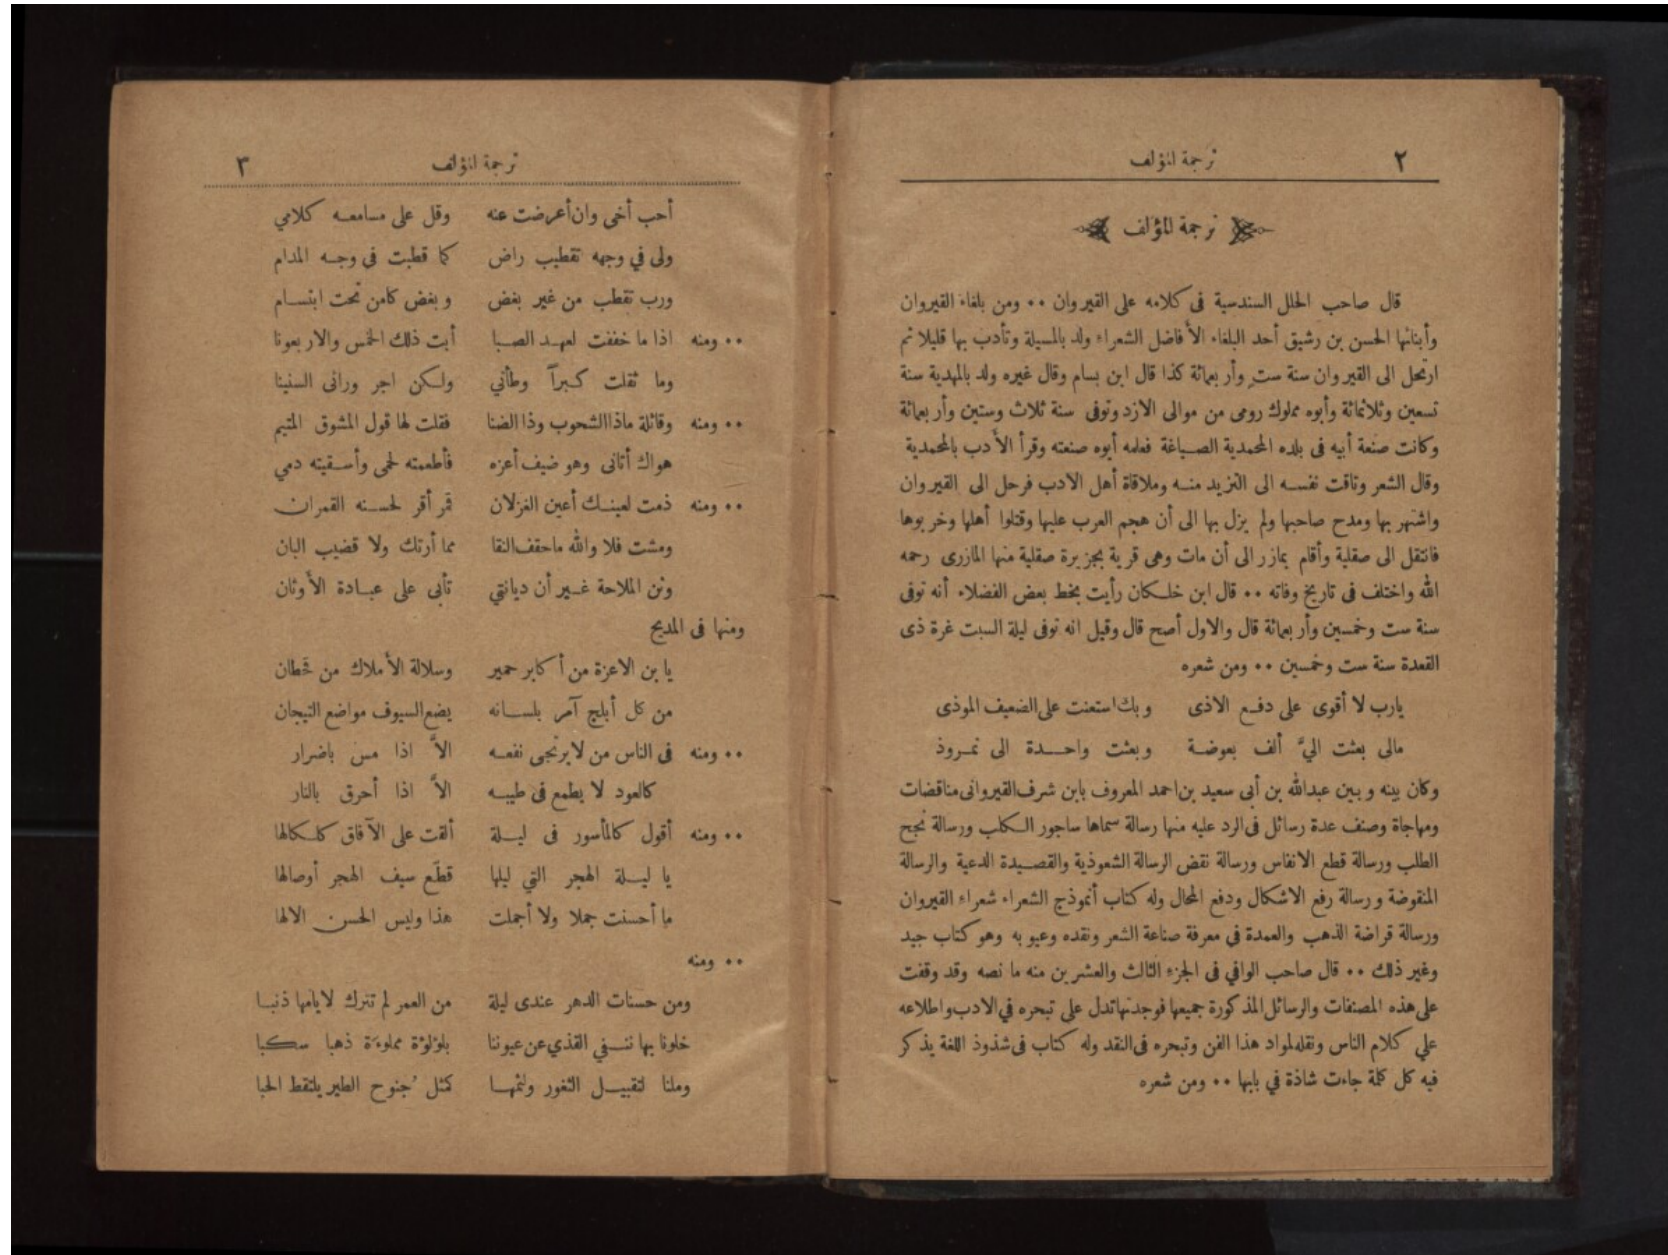 ٢
ترجمة المؤلف
ترجمة المؤلف
قال صاحب الحلل السندسية فى كلامه على القيروان ٠٠ ومن بلغاء القيروان
وأبنائها الحسن بن رشيق أحد البلغاء الأفاضل الشعراء ولد بالمسيلة وتأدب بها قليلا ثم
ارتحل الى القيروان سنة ست وأربعمائة كذا قال ابن بسام وقال غيره ولد بالمهدية سنة
تسعين وثلاثمائة وأبوه مملوك رومى من موالى الازد وتوفى سنة ثلاث وستين وأربعمائة
وكانت صنعة أبيه فى بلده المحمدية الصياغة فعلمه أبوه صنعته وقرأ الأدب بالمحمدية
وقال الشعر وتاقت نفسه الى التزيد منه وملاقاة أهل الادب فرحل الى القيروان
واشتهر بها ومدح صاحبها ولم يزل بها الى أن هجم العرب عليها وقتلوا أهلها وخربوها
فانتقل الى صقلية وأقام بمازر الى أن مات وهى قرية بجزيرة صقلية منها المازرى رحمه
الله واختلف فى تاريخ وفاته ٠٠ قال ابن خلكان رأيت بخط بعض الفضلاء أنه توفى
سنة ست وخمسين وأربعمائة قال والاول أصح قال وقيل انه توفى ليلة السبت غرة ذى
القعدة سنة ست وخمسين ٠٠ ومن شعره
يارب لا أقوى على دفع الاذى وبك استعنت على الضعيف الموذى
مالى بعثت اليَّ ألف بعوضة وبعثت واحدة الى نمروذ
وكان بينه وبين عبدالله بن أبى سعيد بن احمد المعروف بابن شرف القيروانى مناقضات
ومهاجاة وصنف عدة رسائل فى الرد عليه منها رسالة سماها ساجور الكلب ورسالة نجح
الطلب ورسالة قطع الانفاس ورسالة نقض الرسالة الشعوذية والقصيدة الدعية والرسالة
المنقوضة ورسالة رفع الاشكال ودفع المحال وله كتاب أنموذج الشعراء شعراء القيروان
ورسالة قراضة الذهب والعمدة في معرفة صناعة الشعر ونقده وعيوبه وهو كتاب جيد
وغير ذلك ٠٠ قال صاحب الوافي فى الجزء الثالث والعشرين منه ما نصه وقد وقفت
على هذه المصنفات والرسائل المذكورة جميعها فوجدتها تدل على تبحره في الادب واطلاعه
علي كلام الناس ونقله لمواد هذا الفن وتبحره فى النقد وله كتاب فى شذوذ اللغة يذكر
فيه كل كلمة جاءت شاذة في بابها ٠٠ ومن شعره
ترجمة المؤلف
٣
أحب أخى وان أعرضت عنه وقل على مسامعه كلامي
ولى في وجهه تقطيب راض كما قطبت فى وجه المدام
ورب تقطب من غير بغض وبغض كامن تحت ابتسام
٠٠ ومنه اذا ما خففت لعهد الصبا أبت ذلك الخمس والاربعونا
وما ثقلت كبراً وطأتي ولكن اجر ورائى السنينا
٠٠ ومنه وقائلة ماذا الشحوب وذا الضنا فقلت لها قول المشوق المتيم
هواك أتانى وهو ضيف أعزه فأطعمته لحمى وأسقيته دمي
٠٠ ومنه ذمت لعينك أعين الغزلان قمر أقر لحسنه القمران
ومشت فلا والله ما حقف النقا مما أرتك ولا قضيب البان
وثن الملاحة غير أن ديانتي تأبى على عبادة الأوثان
ومنها فى المديح
يا بن الاعزة من أكابر حمير وسلالة الأملاك من قحطان
من كل أبلج آمر بلسانه يضع السيوف مواضع التيجان
٠٠ ومنه فى الناس من لا يرتجى نفعه الاَّ اذا مس باضرار
كالعود لا يطمع فى طيبه الاَّ اذا أحرق بالنار
٠٠ ومنه أقول كالمأسور فى ليلة ألقت على الآفاق كلكالها
يا ليلة الهجر التي ليلها قطّع سيف الهجر أوصالها
ما أحسنت جملا ولا أجملت هذا وليس الحسن الالها
٠٠ ومنه
ومن حسنات الدهر عندى ليلة من العمر لم تترك لايامها ذنبا
خلونا بها ننفي القذي عن عيوننا بلؤلؤة مملوءة ذهبا سكبا
وملنا لتقبيل الثغور ولثمها كمثل جُنوح الطير يلتقط الحبا